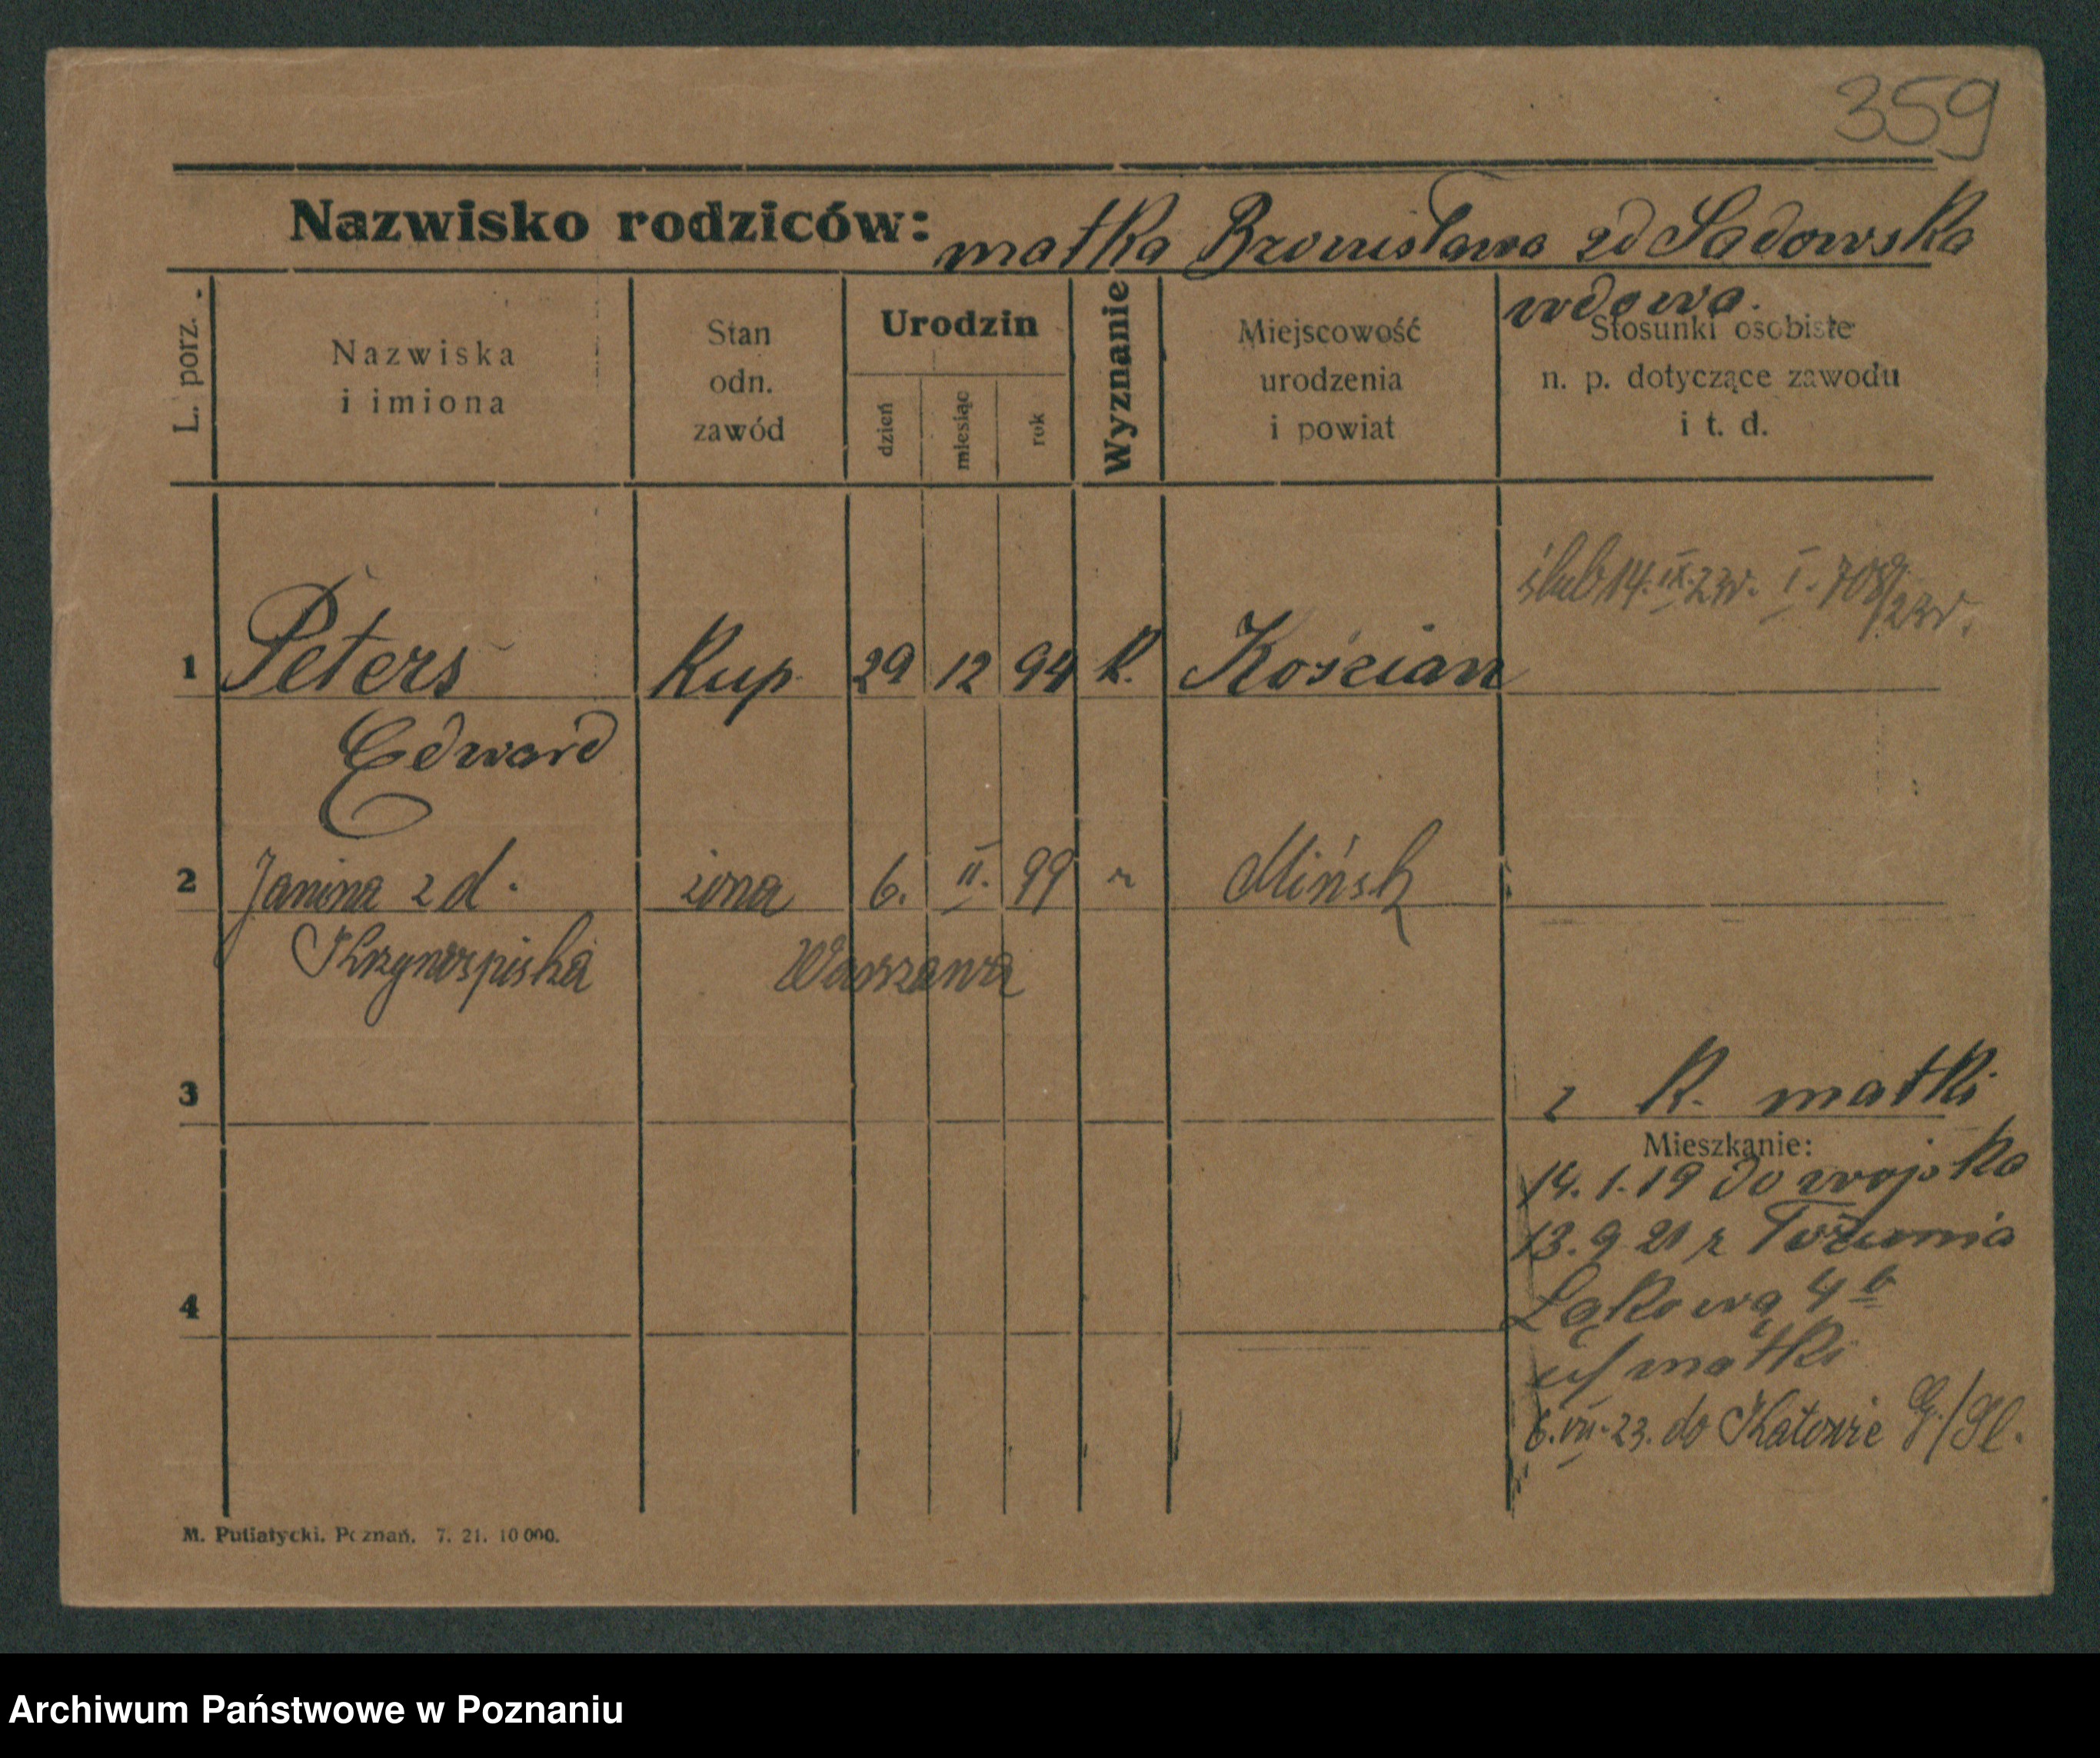 359
Nazwisko rodziców: matka Bronisława zd Sadowska
wdowa.
L. porz.
Nazwiska
i imiona
Stan
odn.
zawód
Urodzin
dzień
miesiąc
rok
Wyznanie
Miejscowość
urodzenia
i powiat
Stosunki osobiste
n. p. dotyczące zawodu
i t. d.
ślub 14. IX. 23r. I. 708/23r.
1 Peters Kup. 29 12 94 k. Kościan
Edward
2 Janina z d. żona 6. II. 99 " Mińsk
Warszawa
3
z k. matki
Mieszkanie:
14.1.19 do wojska
13.9 21 z Torunia
Łąkowa 4 b
4
u/ matki
6. VII. 23. do Katowic G./Śl.
M. Putiatycki. Poznań. 7. 21. 10 000.
Archiwum Państwowe w Poznaniu